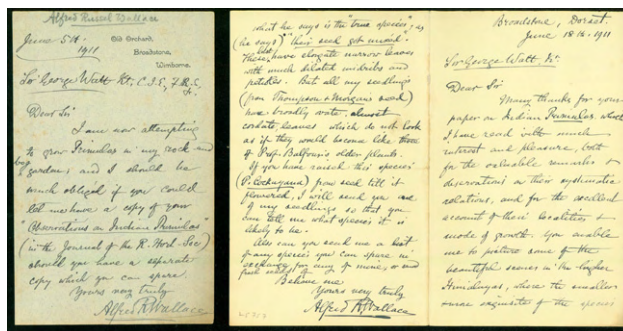 Alfred Russel Wallace
June 5th.
1911
Old Orchard,
Broadstone,
Wimborne.
Sir George Watt Kt; C.I.E, F.R.S,
Dear Sir
I am now attempting
to grow Primulas in my rock and
bog gardens, and I should be
much obliged if you could
let me have a copy of your
"Observations on Indian Primulas"
(in the Journal of the R. Hort. Soc)
should you have a separate
copy which you can spare.
Yours very truly
Alfred R. Wallace
what he says is the "true species", as
(he says) "their seed got mixed."
these, have elongate narrow leaves
with much dilated midribs and
petioles. But all my seedlings
(from Thompson & Morgans seed)
have broadly ovate, almost
cordate, leaves which do not look
as if they would become like those
of Prof. Balfour's older plants.
If you have raised this species
(P. Cockburniana) from seed till it
flowered, I will send you one
of my seedlings so that you
can tell me what species it is
likely to be.
Also can you send me a list
of any species you can spare in
exchange for any of mine, or
Believe me
Yours very truly
Alfred R. Wallace
Broadstone, Dorset.
June 18th. 1911
Sir George Watt Kt.
Dear Sir
Many thanks for your
paper on Indian Primulas, which
I have read with much
interest and pleasure, both
for the valuable remarks &
observations on their systematic
relations, and for the excellent
account of their localities &
mode of growth. You enable
me to picture some of the
beautiful scenes in the higher
Himalayas, where the smaller
& more exquisite of the species